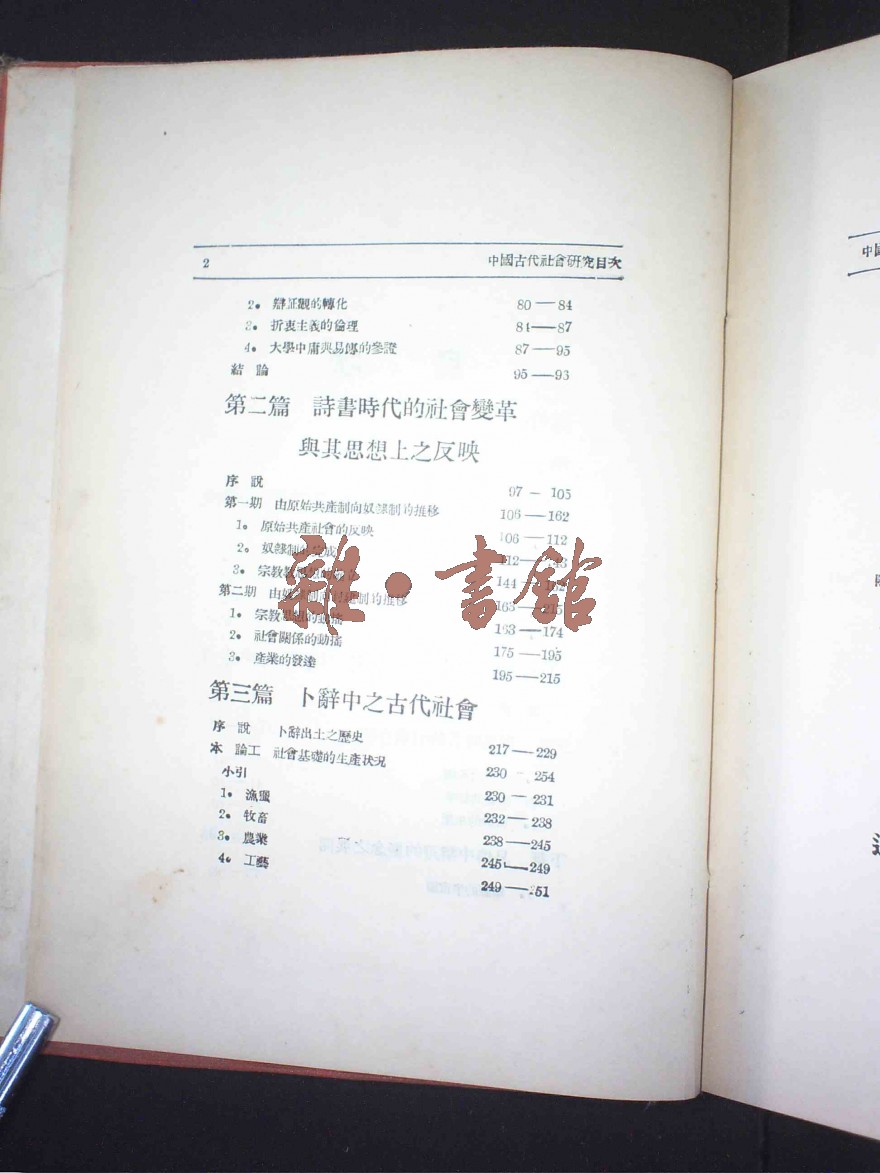 2 中國古代社會研究目次
2. 辯証觀的轉化 80—84
3. 折衷主義的倫理 84—87
4. 大學中庸與易傳的參證 87—95
結論 95—93
第二篇 詩書時代的社會變革
與其思想上之反映
序說 97—105
第一期 由原始共產制向奴隸制的推移 106—162
1. 原始共產社會的反映 106—112
2. 奴隸制 112—
3. 宗教 144—
第二期 由 制的推移 163—215
1. 宗教思想的動搖 163—174
2. 社會關係的動搖 175—195
3. 產業的發達 195—215
第三篇 卜辭中之古代社會
序說 卜辭出土之歷史 217—229
本論工 社會基礎的生產狀況 230—254
小引 230—231
1. 漁獵 232—238
2. 牧畜 238—245
3. 農業 245—249
4. 工藝 249—251
雜·書館
中國